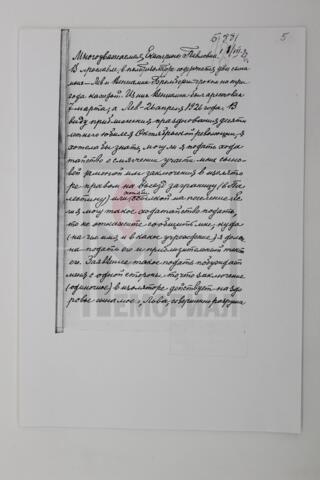 Б 731
5
Многоуважаемая, Екатерина Павловна!
В Ярославле, в политизоляторе содержатся два сына
мои – Лев и Вениамин Бромберг сроком на три
года каждый. Из них Вениамин был арестован
7 марта, а Лев – 26 апреля 1926 года. В
виду приближения празднования десяти
летнего юбилея Октябрьской революции, я
хотела бы знать, могу ли я подать хода
тайство о смягчении участи моих сыно
вей заменой им заключения в изолято
ре правом на выезд заграницу (в Па
лестину) или ссылкой на поселение. Ес
ли я могу такое ходатайство подать,
то не откажите сообщить мне, куда
(на чье имя и в какое учреждение) я долж
на подать его и приблизительный текст
его. Заявление такое подать побуждает
меня с одной стороны то, что заключение
(одиночное) в изоляторе действует на здо
ровье сына мое, Льва, совершенно разруша
МЕМОРИАЛ